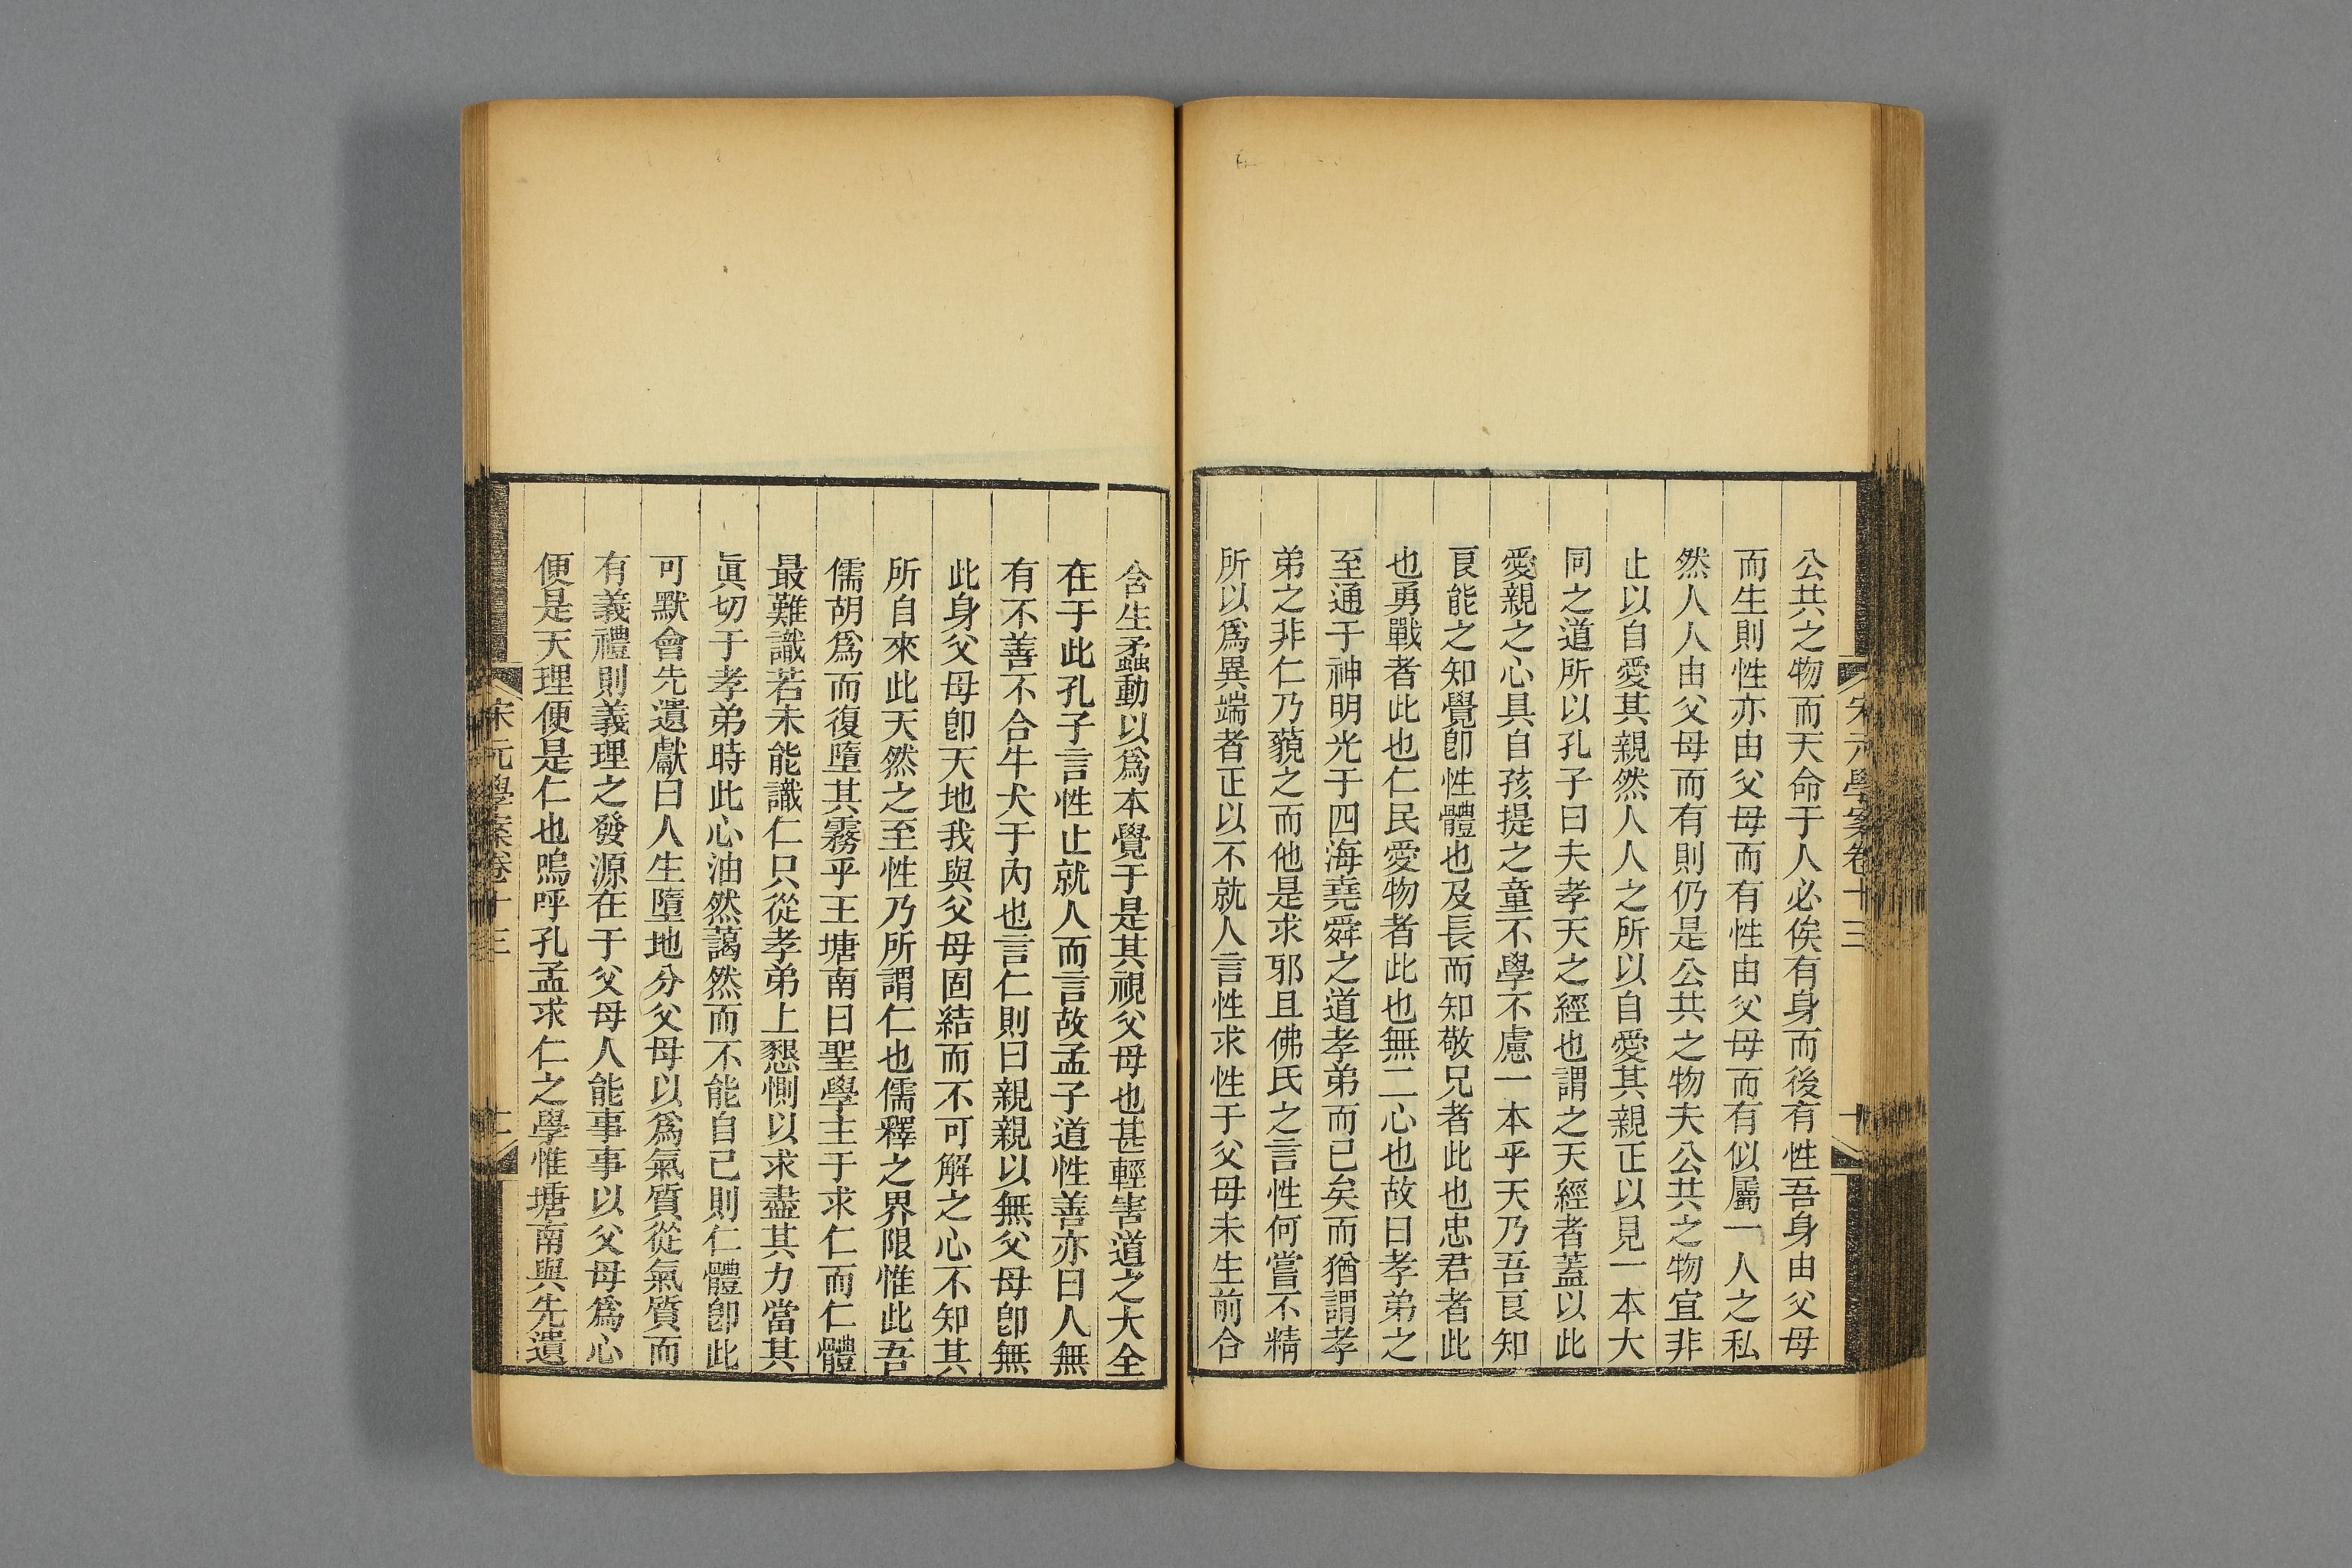 宋元學案卷十三
十
公共之物而天命于人必俟有身而後有性吾身由父母
而生則性亦由父母而有性由父母而有似屬一人之私
然人人由父母而有則仍是公共之物夫公共之物宜非
止以自愛其親然人人之所以自愛其親正以見一本大
同之道所以孔子曰夫孝天之經也謂之天經者蓋以此
愛親之心具自孩提之童不學不慮一本乎天乃吾良知
良能之知覺卽性體也及長而知敬兄者此也忠君者此
也勇戰者此也仁民愛物者此也無二心也故曰孝弟之
至通于神明光于四海堯舜之道孝弟而已矣而猶謂孝
弟之非仁乃藐之而他是求邪且佛氏之言性何嘗不精
所以爲異端者正以不就人言性求性于父母未生前合
含生矛蠱動以爲本覺于是其視父母也甚輕害道之大全
在于此孔子言性止就人而言故孟子道性善亦曰人無
有不善不合牛犬于內也言仁則曰親親以無父母卽無
此身父母卽天地我與父母固結而不可解之心不知其
所自來此天然之至性乃所謂仁也儒釋之界限惟此吾
儒胡爲而復墮其霧乎王塘南曰聖學主于求仁而仁體
最難識若未能識仁只從孝弟上懇惻以求盡其力當其
眞切于孝弟時此心油然藹然而不能自已則仁體卽此
可默會先遺獻曰人生墮地分父母以爲氣質從氣質而
有義禮則義理之發源在于父母人能事事以父母爲心
便是天理便是仁也嗚呼孔孟求仁之學惟塘南與先遺
宋元學案卷十三